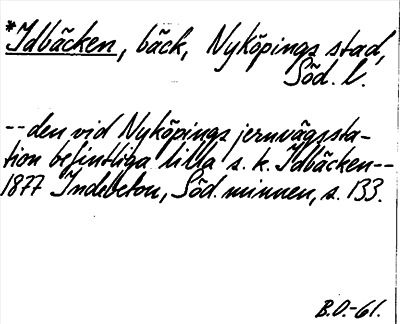 *Idbäcken, bäck, Nyköpings stad,
Söd. l.
-- den vid Nyköpings jernvägssta-
tion befintliga lilla s. k. Idbäcken --
1877 Indebetou, Söd. minnen, s. 133.
B.O.-61.